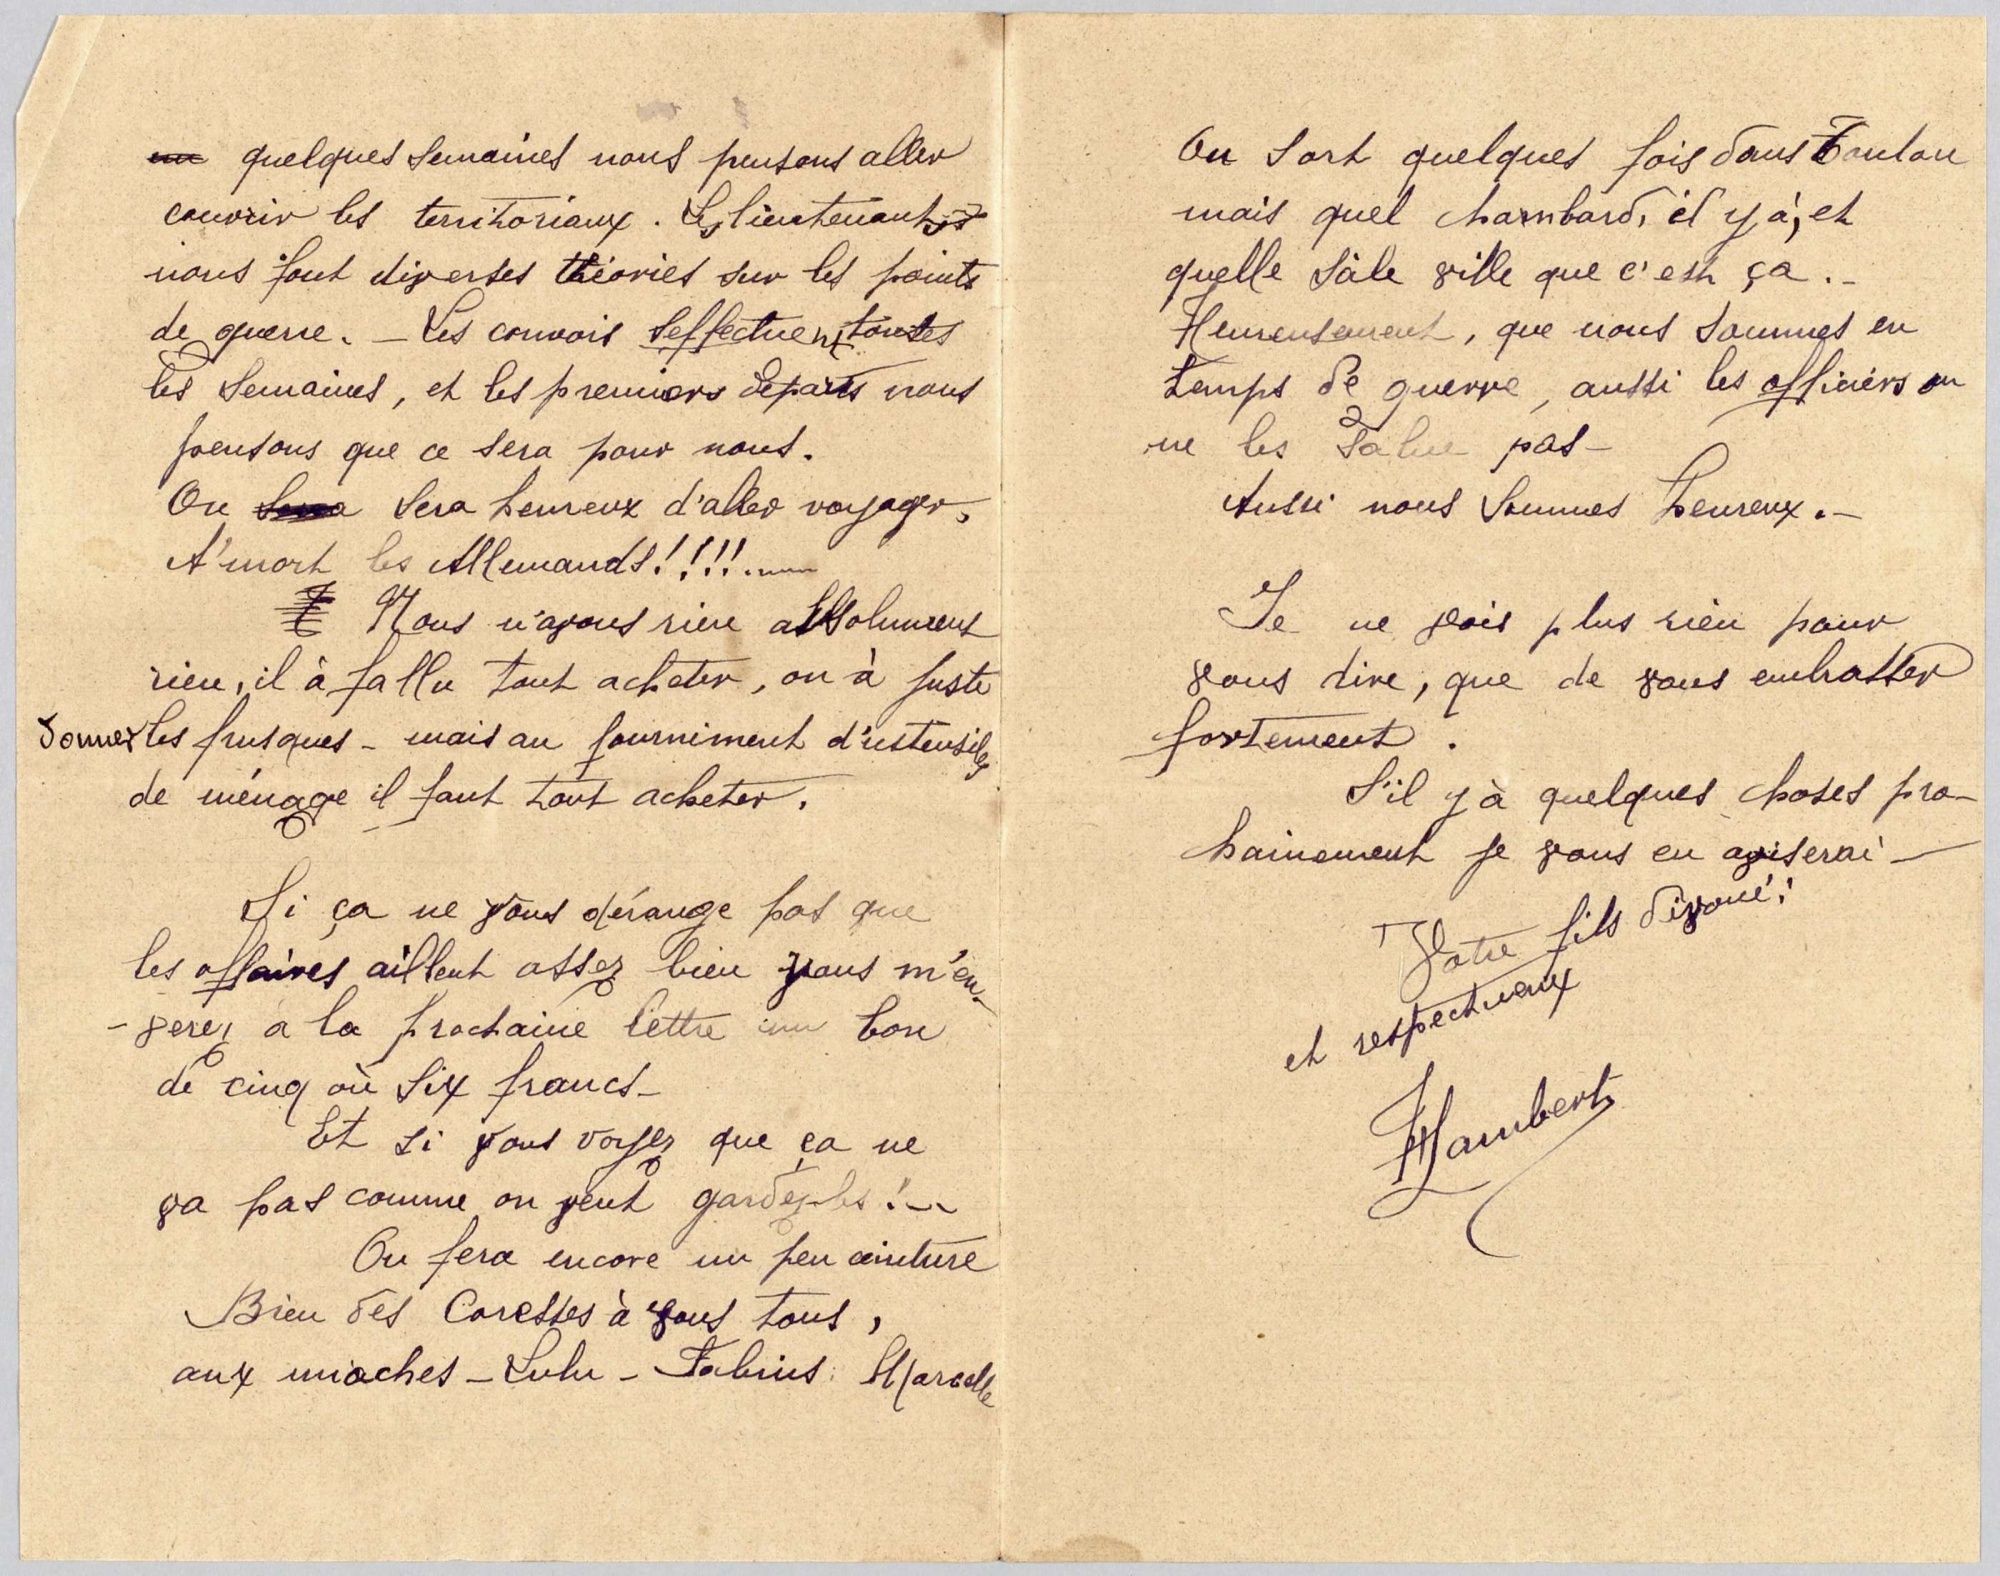 quelques semaines nous pensons aller
couvrir les territoriaux. Les lieutenants
nous font diverses théories sur les points
de guerre. — Les convois s'effectuent toutes
les semaines, et les premiers départs nous
pensons que ce sera pour nous.
On sera heureux d'aller voyager,
A'mort les Allemands!!!!.....
Nous n'avons rien absolument
rien, il à fallu tout acheter, on à juste
donner les frusques — mais au fourniment d'ustensiles
de ménage il faut tout acheter.
Si ça ne vous dérange pas que
les affaires aillent assez bien vous m'en-
-verez à la prochaine lettre un bon
de cinq où six francs —
Et si vous voyez que ça ne
va pas comme on veut gardez-les! —
On fera encore un peu ceinture
Bien des Caresses à vous tous,
aux mioches — Lulu — Fabius. Marcelle
On sort quelques fois dans Toulon
mais quel chambard, il y à, et
quelle sâle ville que c'est ça. —
Heureusement, que nous sommes en
temps de guerre, aussi les officiers on
ne les salue pas —
Aussi nous sommes heureux. —
Je ne vois plus rien pour
vous dire, que de vous embrasser
fortement.
S'il y à quelques choses pro-
chainement je vous en aviserai —
Votre fils dévoué!
et respectueux
Hambert